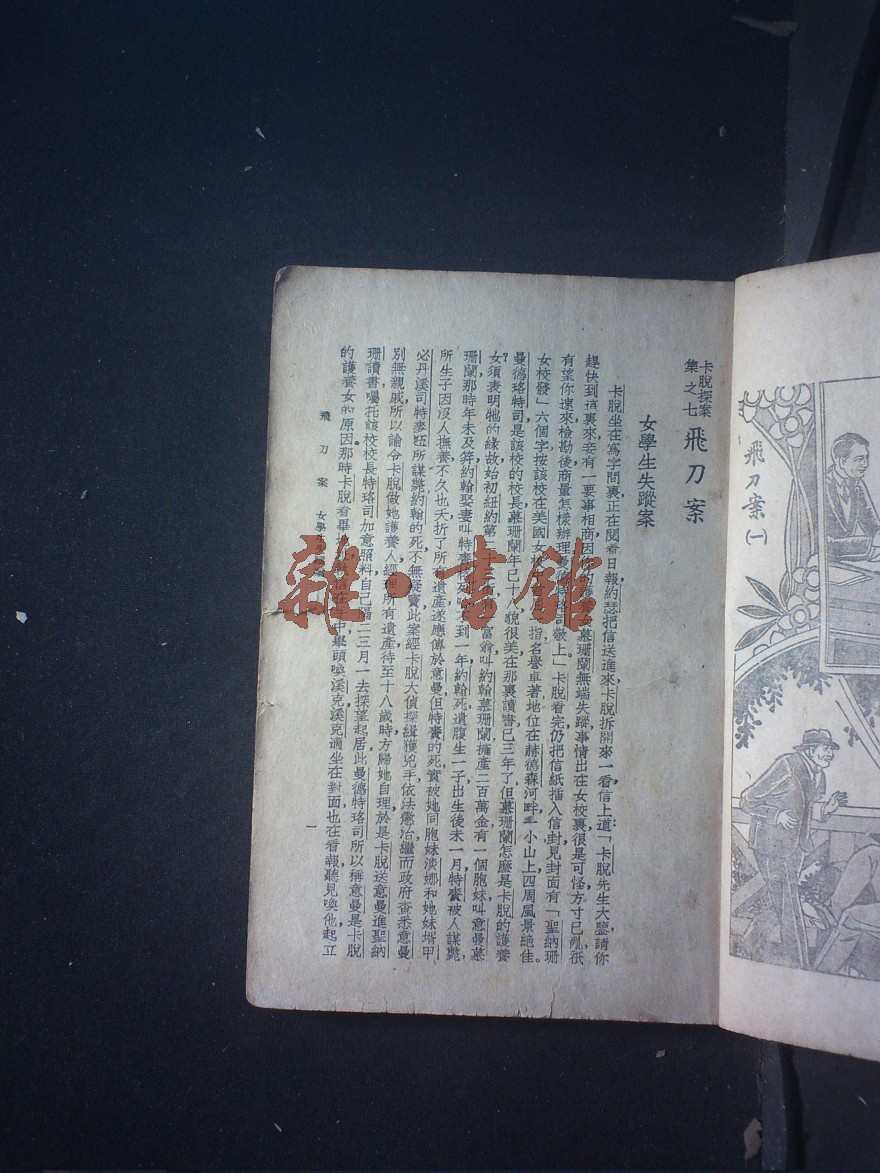 飛刀案(一)
卡脫探案
集之七
飛刀案
女學生失蹤案
卡脫坐在寫字間裏正在閱看日報約瑟把信送進來卡脫拆開來一看信上道「卡脫先生大鑒請你
趕快到這裏來妾有一要事相商因你的護養女慕珊蘭無端失蹤事情出在女校裏很是可怪方寸已亂祇
有望你速來檢勘後商量怎樣辦理曼德特珞司敬上」卡脫看完仍把信紙插入信封見封面有「聖納珊
女校發」六個字按該校在美國女校指名譽卓著地位在赫德森河畔一小山上四周風景絕佳。
曼德珞特司是該校的校長慕珊蘭年已十八貌很美在那裏讀書已三年了但慕珊蘭怎麼是卡脫的護養
女須表明他的緣故始初紐約第二十富翁叫約翰慕珊蘭擁產二百萬金有一個胞妹叫意曼慕
珊蘭那時年未及笄約翰娶妻叫特賚不到一年約翰死遺腹生一子出生後未一月特賚被人謀斃
所生子因沒人撫養不久也夭折了所有遺產遂應傳於意曼但特賚的死實被她同胞妹淡娜和她妹婿甲
必丹溪司特麥所謀斃約翰的死不無疑竇此案經卡脫大偵探緝獲兇手依法懲治繼而政府查悉意曼
別無親戚所以諭令卡脫做她護養人經理所有遺產待至十八歲時方歸她自理於是卡脫送意曼進聖納
珊讀書囑托該校校長特珞司加意照料自己隔二三月一去探望起居此曼德特珞司所以稱意曼是卡脫
的護養女的原因那時卡脫看畢中舉頭喚溪克溪克適坐在對面也在看報聽見喚他起立
飛刀案 女學生
一
雜·書館